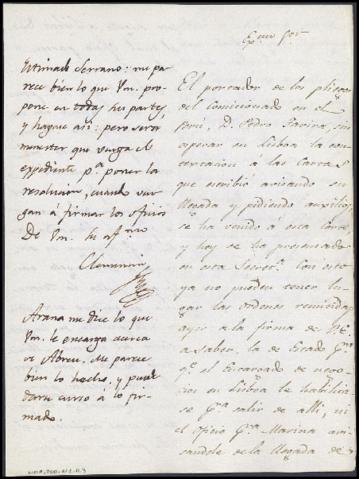 Exmo Sor
Estimado Serrano: me pa
rece bien lo que Vm. pro
pone en todas sus partes,
y hagase asi: pero será
menester que venga el
expediente pa. poner la
resolucion, cuando ven
gan á firmar los oficios
De Vm. su afmo
Clemencin
Arana me dice lo que
Vm. le encarga acerca
de Abreu. Me parece
bien lo hecho, y puede
darse curso á lo fir
mado.
El portador de los pliegos
del Comisionado en el
Perú, D. Pedro
esperar en Lisboa la con
testacion á las cartas
que escribió avisando su
llegada y pidiendo auxilios
se ha venido á esta Corte
y hoy se ha presentado
en esta Secreta. Con esto
ya no pueden tener lu
gar las ordenes remitidas
ayer á la firma de VE.
á saber, la de Estado pa.
qe. el Encargado de nego
cios en Lisboa le habilita
se pa. salir de alli, ni
el oficio pa. Marina avi
sandole de la llegada de